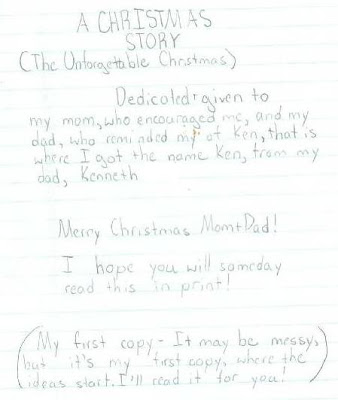 A CHRISTMAS
STORY
(The Unforgetable Christmas)
Dedicoted+given to
my mom, who encouraged me, and my
dad, who reminded my of Ken, that is
where I got the name Ken, from my
dad, Kenneth
Merry Christmas Mom+Dad!
I hope you will someday
read this in print!
(My first copy - It may be messy,
but it's my first copy, where the
ideas start. I'll read it for you!)